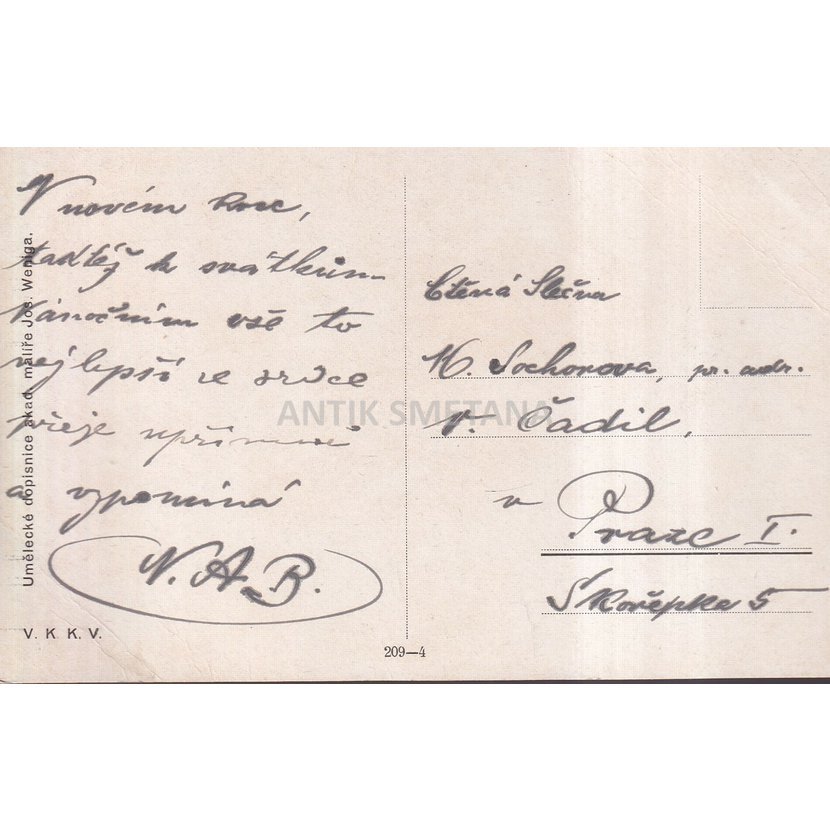 V novém roce,
taktéž k svátkům
Vánočním vše to
nejlepší ze srdce
přeje upřímně
a vzpomíná
N. A. B.
Umělecké dopisnice akad. malíře Jos. Weniga.
V. K. K. V.
209—4
Ctěná Slečna
M. Sochorova, pr. adr.
V. Čadil,
v Praze I.
Skořepka 5
ANTIK SMETANA